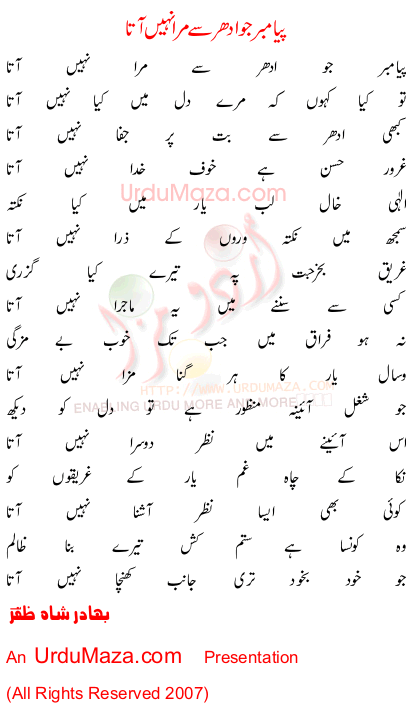 پیامبر جو ادھر سے مرا نہیں آتا
پیامبر جو ادھر سے مرا نہیں آتا
تو کیا کہوں کہ مرے دل میں کیا نہیں آتا
کبھی ادھر سے بت پر جفا نہیں آتا
غرور حسن ہے خوف خدا نہیں آتا
UrduMaza.com
الٰہی خال لب یار میں کیا نکتہ
سمجھ میں نکتہ وروں کے ذرا نہیں آتا
غریق بخرجت پہ تیرے کیا گزری
کسی سے سننے میں یہ ماجرا نہیں آتا
اردو مزا
نہ ہو فراق میں جب تک خوب بے مزگی
وسال یار کا ہر گنا مزا نہیں آتا
HTTP://WWW.URDUMAZA.COM
جو شغل آئینہ منظور ہے تو دل کو دیکھ
ENABLING URDU MORE AND MORE
اس آئینے میں نظر دوسرا نہیں آتا
نکا کے چاہ غم یار کے غریقوں کو
کوئی بھی ایسا نظر آشنا نہیں آتا
وہ کونسا ہے ستم کش تیرے بنا ظالم
جو خود بخود تری جانب کھنچا نہیں آتا
بھادر شاہ ظفر
An UrduMaza.com Presentation
(All Rights Reserved 2007)